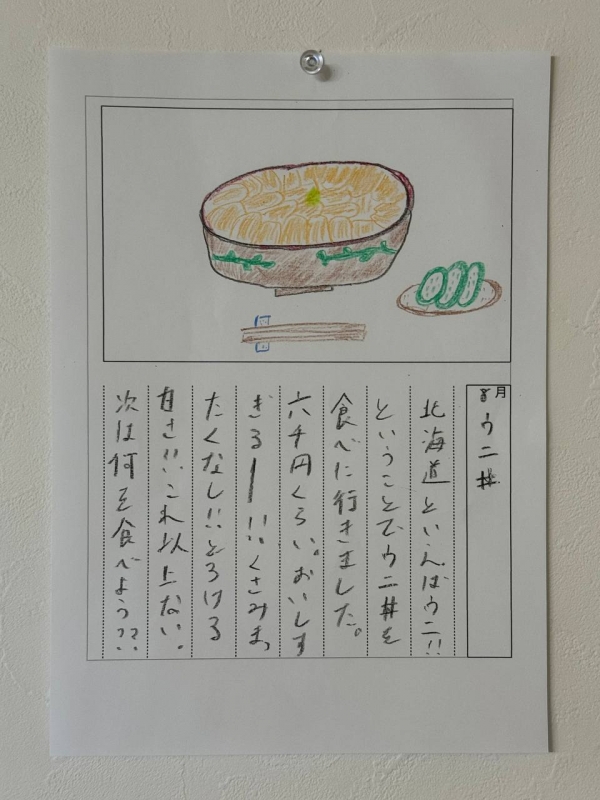 月
日
ウニ丼
北海道といえばウニ!!
ということでウニ丼を
食べに行きました。
六千円くらい。おいしす
ぎるー!!くさみまっ
たくなし!!とろける
甘さ!!これ以上ない。
次は何を食べよう??